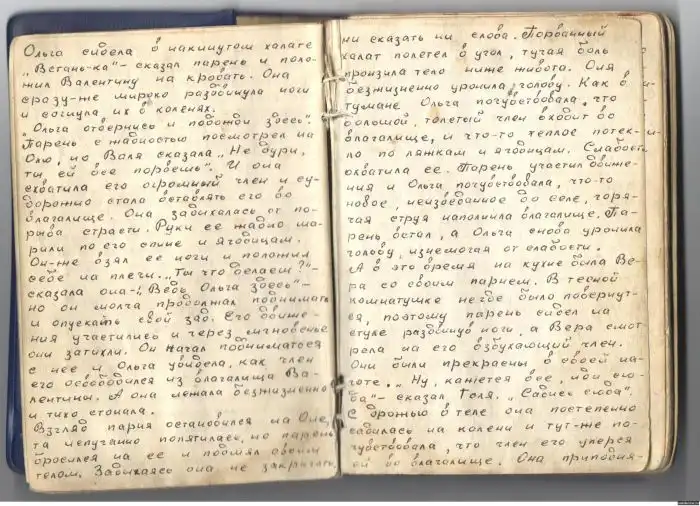 Ольга сидела в накинутом халате
„Встань-ка“ – сказал парень и поло-
жил Валентину на кровать. Она
сразу-же широко раздвинула ноги
и согнула их в коленях.
„Ольга отвернись и подожди здесь“.
Парень с жадностью посмотрел на
Олю, но Валя сказала „Не дури,
ты ей все порвешь“. И она
схватила его огромный член и су-
дорожно стала вставлять его во
влагалище. Она задыхалась от по-
рыва страсти. Руки ее жадно ша-
рили по его спине и ягодицам.
Он-же взял ее ноги и положил
себе на плечи. „Ты что делаешь?“–
сказала она–„Ведь Ольга здесь“–
но он молча продолжал поднимать
и опускать свой зад. Его движе-
ния участились и через мгновенье
они затихли. Он начал подниматься
с нее и Ольга увидела, как член
его освободился из влагалища Ва-
лентины. А она лежала безжизненно
и тихо стонала.
Взгляд парня остановился на Оле,
та испуганно попятилась, но парень
бросился на ее и подмял своим
телом. Задыхаясь она не закричала
ни сказать ни слова. Порванный
халат полетел в угол, тучая боль
пронзила тело ниже живота. Оля
безжизненно уронила голову. Как в
тумане Ольга почувствовала, что
большой, толстый член входит во
влагалище, и что-то теплое потек-
ло по ляжкам и ягодицам. Слабость
охватила ее. Парень участил движе-
ния и Ольга почувствовала, что-то
новое, неизведанное до селе, горя-
чая струя наполнила влагалище. Па-
рень встал, а Ольга снова уронила
голову, изнемогая от слабости.
А в это время на кухне была Ве-
ра со своим парнем. В тесной
комнатушке негде было повернут-
ся, поэтому парень сидел на
стуле раздвинув ноги, а Вера смот
рела на его взбухающий член.
Они были прекрасны в своей на-
готе. „Ну, кажется все, иди сю-
ба“– сказал Толя. „Садись сюда“.
С дрожью в теле она постепенно
садилась на колени и тут-же по-
чувствовала, что член его уперся
ей во влагалище. Она приподня-